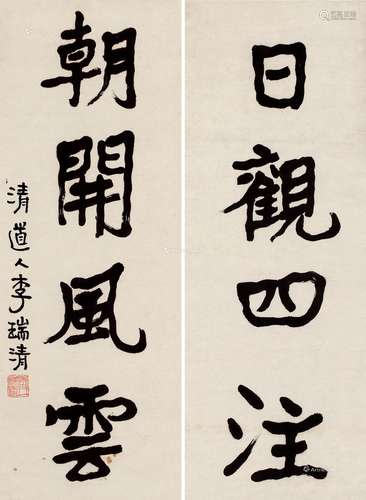 日觀四注
朝開風雲
清道人李瑞清